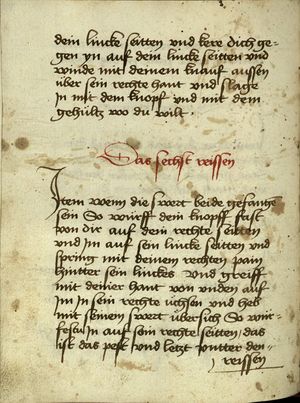 dein lincke seitten vnd kere dich ge-
gen yn auf dein lincke seitten vnd
winde mit deinem knauf aussen
über sein rechte hant vnd slage
In mit dem knopf vnd mit dem
gehültz wo du wilt.
Das sechst reissen
Item wenn die swert beide gefange
sein So würff dein knopff fast
von dir auf dein rechte seitten
vnd In auf sein lincke seitten vnd
spring mit deinen rechten pain
hintter sein linckes vnd greiff
mit deiner hant von vnden auf
Im in sein rechte üchsen vnd heb
mit seinem swert übersich So wir-
festu In auf sein rechte seitten das
ist das pest vnd letzt vntter den-
reissen